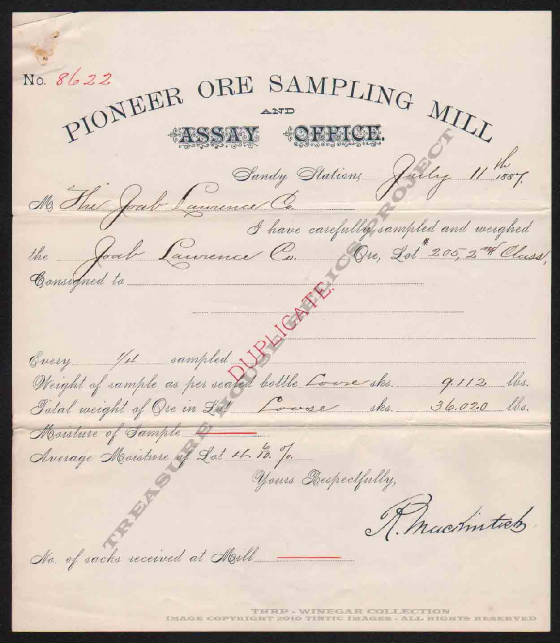 No. 8622
PIONEER ORE SAMPLING MILL
AND
ASSAY OFFICE.
Sandy Station, July 11th 1887.
M The Joab Lawrence Co.
I have carefully sampled and weighed
the Joab Lawrence Co. Ore, Lot # 205, 2nd Class,
Consigned to
DUPLICATE.
Every 1/4 sampled
Weight of sample as per sealed bottle Loose sks. 9.112 lbs.
Total weight of Ore in Lot Loose sks. 36.020 lbs.
Moisture of Sample
Average Moisture of Lot 4. %
Yours Respectfully,
R. MacKintosh
No. of sacks received at Mill
TREASURE HOUSE RELICS PROJECT
THRP - WINEGAR COLLECTION
IMAGE COPYRIGHT 2010 TINTIC IMAGES - ALL RIGHTS RESERVED